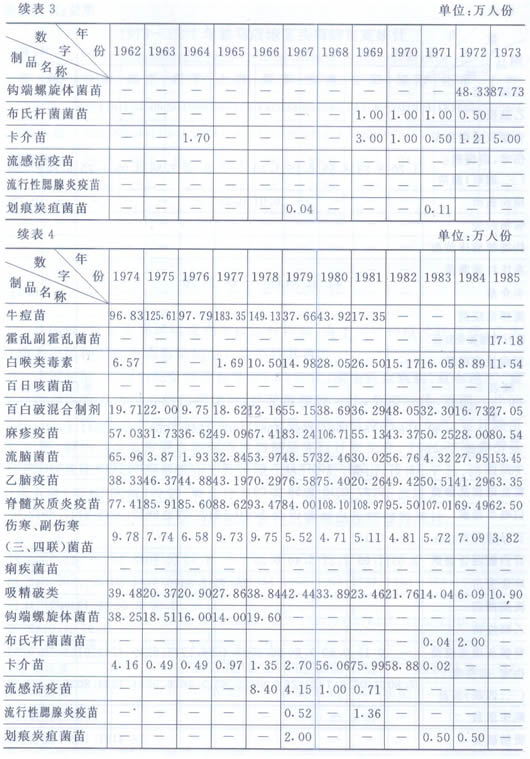 续表3 单位:万人份
数字 年份 制品名称 1962 1963 1964 1965 1966 1967 1968 1969 1970 1971 1972 1973
钩端螺旋体菌苗 — — — — — — — — — — 48.33 87.73
布氏杆菌菌苗 — — — — — — — 1.00 1.00 1.00 0.50 —
卡介苗 — — 1.70 — — — — 3.00 1.00 0.50 1.21 5.00
流感活疫苗 — — — — — — — — — — — —
流行性腮腺炎疫苗 — — — — — — — — — — — —
划痕炭疽菌苗 — — — — — 0.04 — — — 0.11 — —
续表4 单位:万人份
数字 年份 制品名称 1974 1975 1976 1977 1978 1979 1980 1981 1982 1983 1984 1985
牛痘苗 96.83 125.61 97.79 183.35 149.13 37.66 43.92 17.35 — — — —
霍乱副霍乱菌苗 — — — — — — — — — — — 17.18
白喉类毒素 6.57 — — 1.69 10.50 14.98 28.05 26.50 15.17 16.05 8.89 11.54
百日咳菌苗 — — — — — — — — — — — —
百白破混合制剂 19.71 22.00 9.75 18.62 12.16 55.15 38.69 36.29 48.05 32.30 16.73 27.05
麻疹疫苗 57.03 31.73 36.62 49.09 67.41 83.24 106.71 55.13 43.37 50.25 28.00 80.54
流脑菌苗 65.96 3.87 1.93 32.84 53.97 48.57 32.46 30.02 56.76 4.32 27.95 153.45
乙脑疫苗 38.33 46.37 44.88 43.19 70.29 76.58 75.40 20.26 49.42 50.51 41.29 63.35
脊髓灰质炎疫苗 77.41 85.91 85.60 88.62 93.47 84.00 108.10 108.97 95.50 107.01 69.49 62.50
伤寒、副伤寒
(三、四联)菌苗 9.78 7.74 6.58 9.73 9.75 5.52 4.71 5.11 4.81 5.72 7.09 3.82
痢疾菌苗 — — — — — — — — — — — —
吸精破类 39.48 20.37 20.90 27.86 38.84 42.44 33.89 23.46 21.76 14.04 6.09 10.90
钩端螺旋体菌苗 38.25 18.51 16.00 14.00 19.60 — — — — — — —
布氏杆菌菌苗 — — — — — — — — — 0.04 2.00 —
卡介苗 4.16 0.49 0.49 0.97 1.35 2.70 56.06 75.99 58.88 0.02 — —
流感活疫苗 — — — — 8.40 4.15 1.00 0.71 — — — —
流行性腮腺炎疫苗 — — — — — 0.52 — 1.36 — — — —
划痕炭疽菌苗 — — — — — 2.00 — — — 0.50 0.50 —